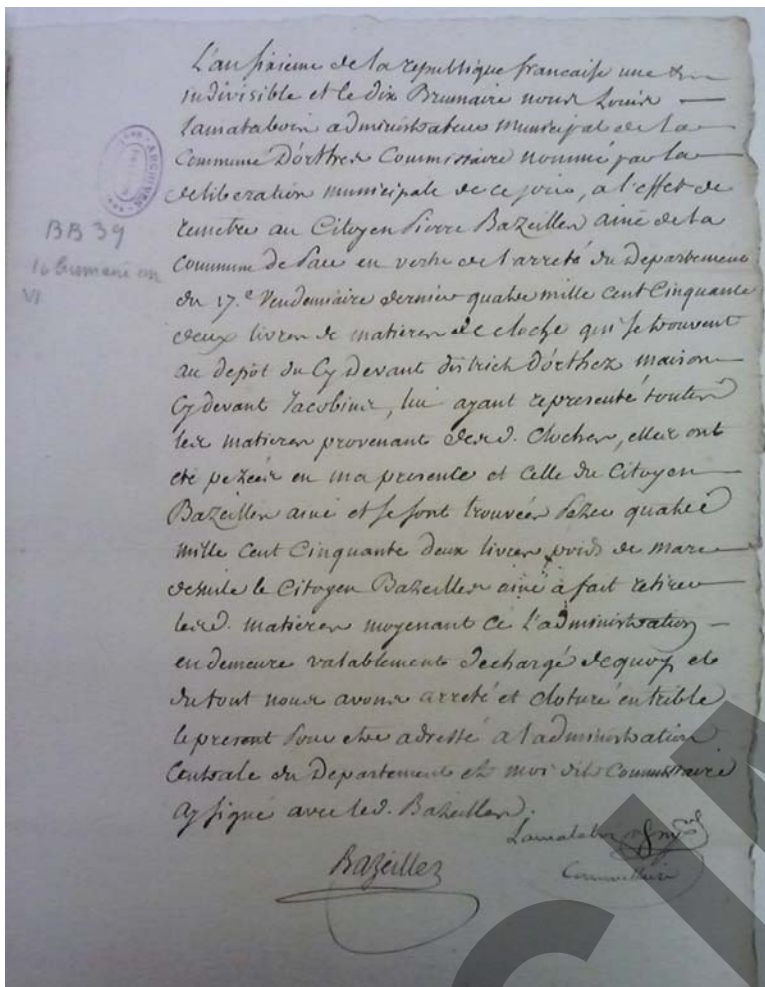 L'an sixieme de la republique francaise une &
indivisible et le dix Brumaire nous Louis
Lamatabois administrateur municipal de la
Commune D'orthes Commissaire nommé par la
deliberation municipale de ce jour, a l'effet de
remetre au Citoyen Pierre Bazeilles ainé de la
Commune de Pau en vertu de l'arreté du Departement
du 17.e Vendemiaire dernier quatre mille cent Cinquante
deux livres de matieres de cloche qui se trouvent
au depot du Cy Devant district D'orthez maison
Cy devant Jacobins, lui ayant representé toutes
les matieres provenant desd. cloches, elles ont
eté pezées en ma presence et Celle du Citoyen
Bazeilles ainé et se sont trouvées Pezer quatre
mille Cent Cinquante deux livres poids de marc
desuite le Citoyen Bazeilles ainé à fait retirer
lesd. matieres moyenant ce l'administration
en demeure valablement dechargé dequoy et
du tout nous avons arreté et cloturé en trible
le present Pour etre adressé a l'administration
Centrale du Departement et moi dit Commissaire
ay signé avec led. Bazeilles.
Bazeilles
Commissaire
ARCHIVES
BB 39
10 brumaire an
VI